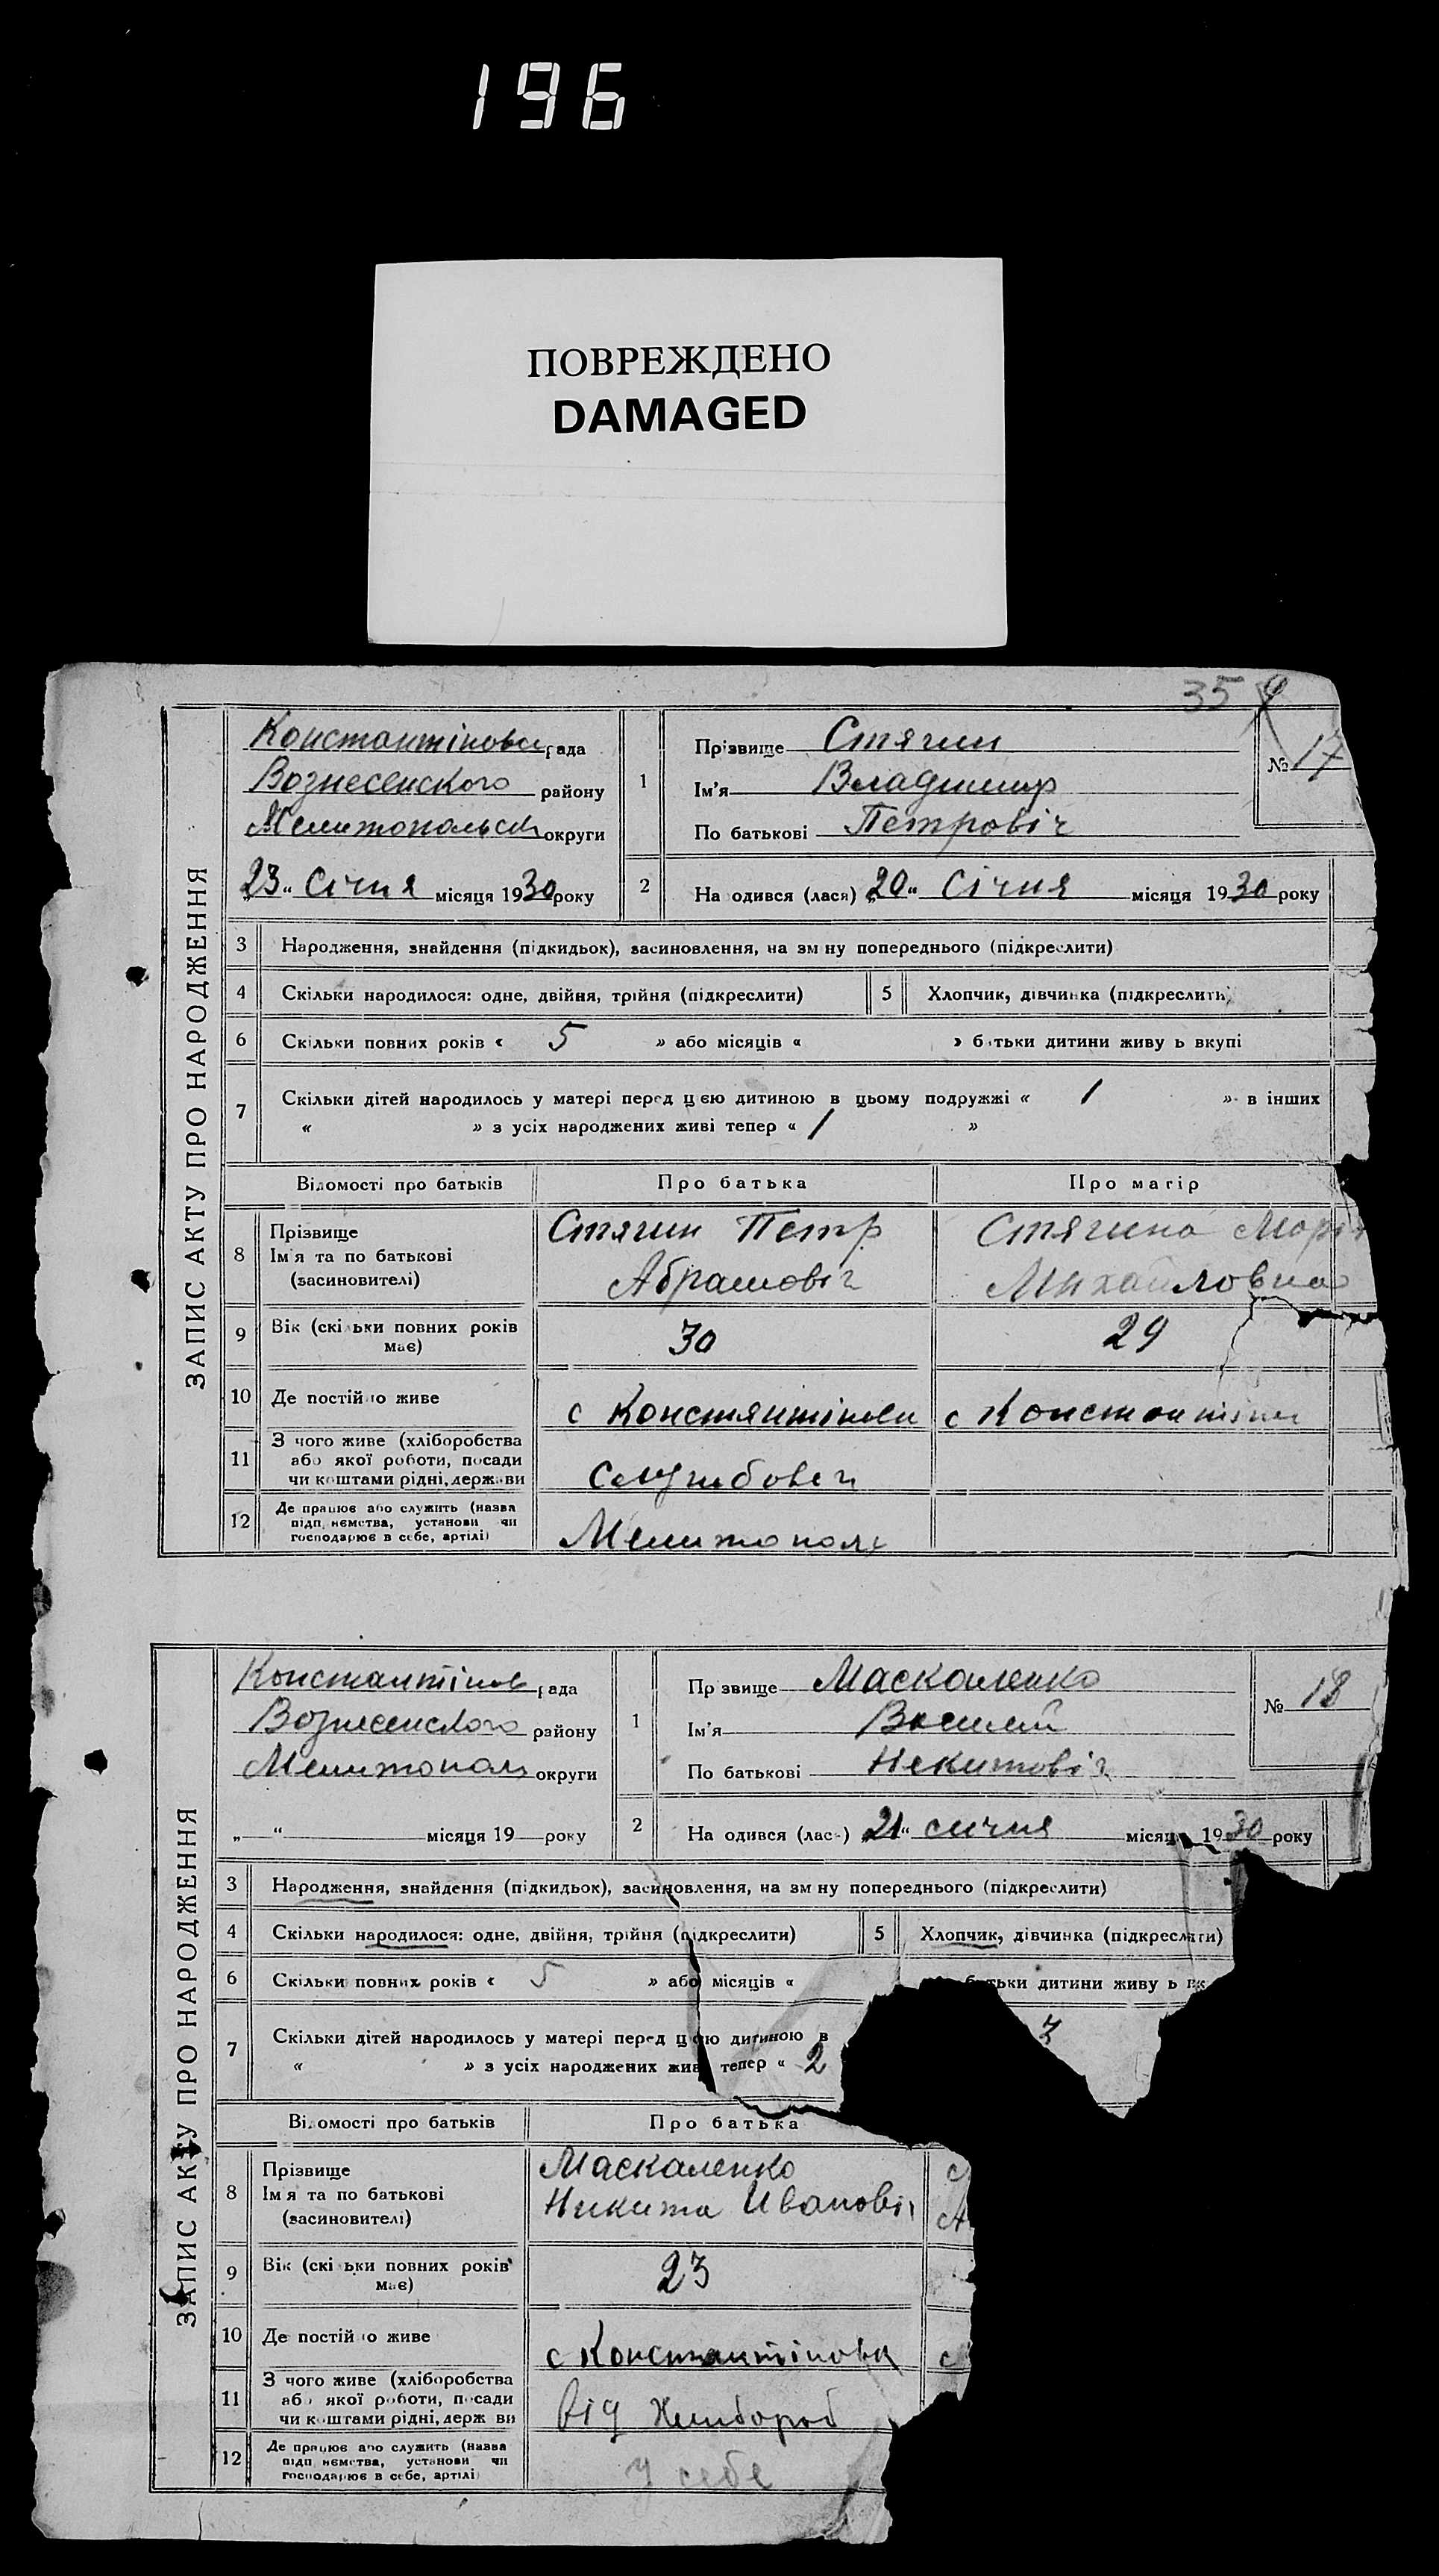 196
ПОВРЕЖДЕНО
DAMAGED
35
ЗАПИС АКТУ ПРО НАРОДЖЕННЯ
Константінова рада
Вознесенского району
Мелитопольск округи
23 „ Січня місяця 1930 року
1
Прізвище Стягин
Ім'я Владимир
По батькові Петровіч
№ 17
2
На одився (лася) „20“ Січня місяця 1930 року
3 Народження, знайдення (підкидьок), засиновлення, на зм ну попереднього (підкреслити)
4 Скільки народилося: одне, двійня, трійня (підкреслити) 5 Хлопчик, дівчинка (підкреслить)
6 Скільки повних років « 5 » або місяців « » б тьки дитини живу ь вкупі
7 Скільки дітей народилось у матері перед цією дитиною в цьому подружжі « 1 » в інших
« » з усіх народжених живі тепер « 1 »
Відомості про батьків Про батька Про матір
8 Прізвище
Ім'я та по батькові
(засиновителі)
Стягин Петр
Абрамовіч
Стягина Мария
Михайловна
9 Вік (скі ьки повних років
має)
30 29
10 Де постій о живе с Константінова с Константін
11 З чого живе (хліборобства
або якої роботи, посади
чи коштами рідні, держави
12 Де працює або служить (назва
підп ємства, установи чи
господарює в себе, артілі)
Мелитополь
ЗАПИС АКТУ ПРО НАРОДЖЕННЯ
Константінов рада
Вознесенского району
Мелитополь округи
„ “ місяця 19 року
1
Пр звище Маскаленко
Ім'я Василий
По батькові Некитовіч
№ 18
2
На одився (лас ) 21“ сичня місяц 1930 року
3 Народження, знайдення (підкидьок), засиновлення, на зм ну попереднього (підкреслити)
4 Скільки народилося: одне, двійня, трійня (підкреслити) 5 Хлопчик, дівчинка (підкреслити)
6 Скільки повних років « 5 » або місяців « батьки дитини живу ь вк
7 Скільки дітей народилось у матері перед цією дитиною в 3
« » з усіх народжених живі тепер « 2
Відомості про батьків Про батька
8 Прізвище
Ім'я та по батькові
(засиновителі)
Маскаленко
Никита Ивановіч
9 Вік (скі ьки повних років
має)
23
10 Де постій о живе с Константінова с
11 З чого живе (хліборобства
або якої роботи, посади
чи коштами рідні, держ ви
від Хлибороб
12 Де працює або служить (назва
підп ємства, установи чи
господарює в себе, артілі)
у себе